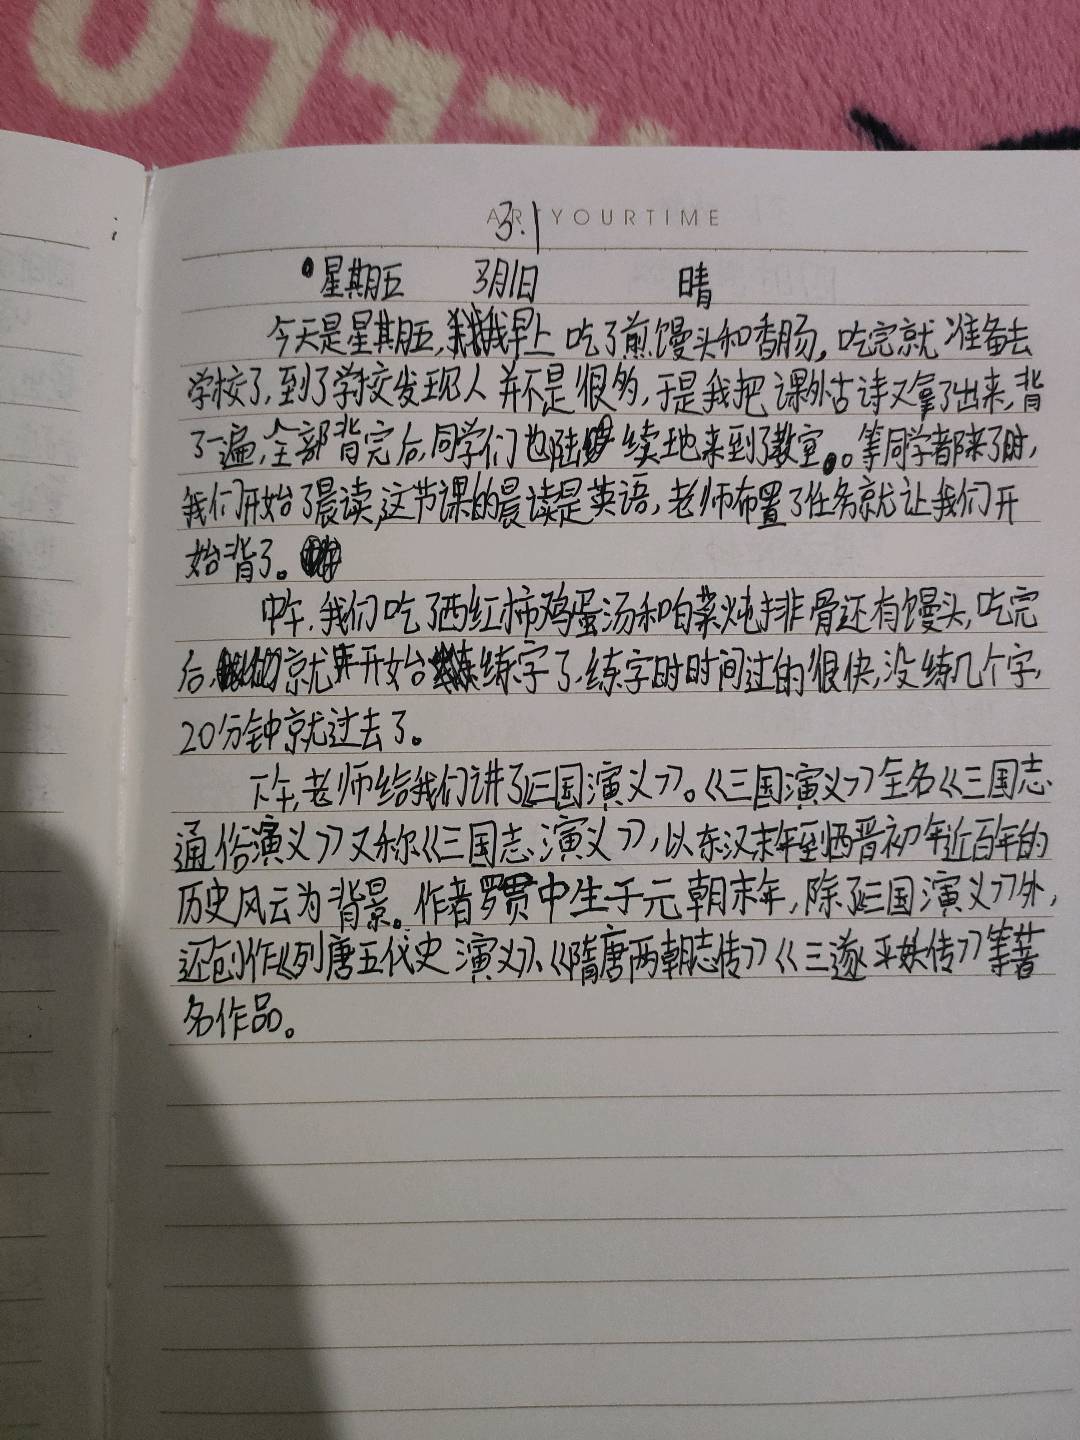 ART YOURTIME
3.1
星期五 3月1日 晴
今天是星期五,我早上吃了煎馒头和香肠,吃完就准备去
学校了,到了学校发现人并不是很多,于是我把课外古诗又拿了出来,背
了一遍,全部背完后,同学们也陆续地来到了教室。等同学都来了时,
我们开始了晨读,这节课的晨读是英语,老师布置了任务就让我们开
始背了。
中午,我们吃了西红柿鸡蛋汤和白菜炖排骨还有馒头,吃完
后,就开始练字了,练字时时间过的很快,没练几个字,
20分钟就过去了。
下午,老师给我们讲了《三国演义》。《三国演义》全名《三国志
通俗演义》又称《三国志演义》,以东汉末年到西晋初年近百年的
历史风云为背景。作者罗贯中生于元朝末年,除了《三国演义》外,
还创作《列唐五代史演义》、《隋唐两朝志传》《三遂平妖传》等著
名作品。